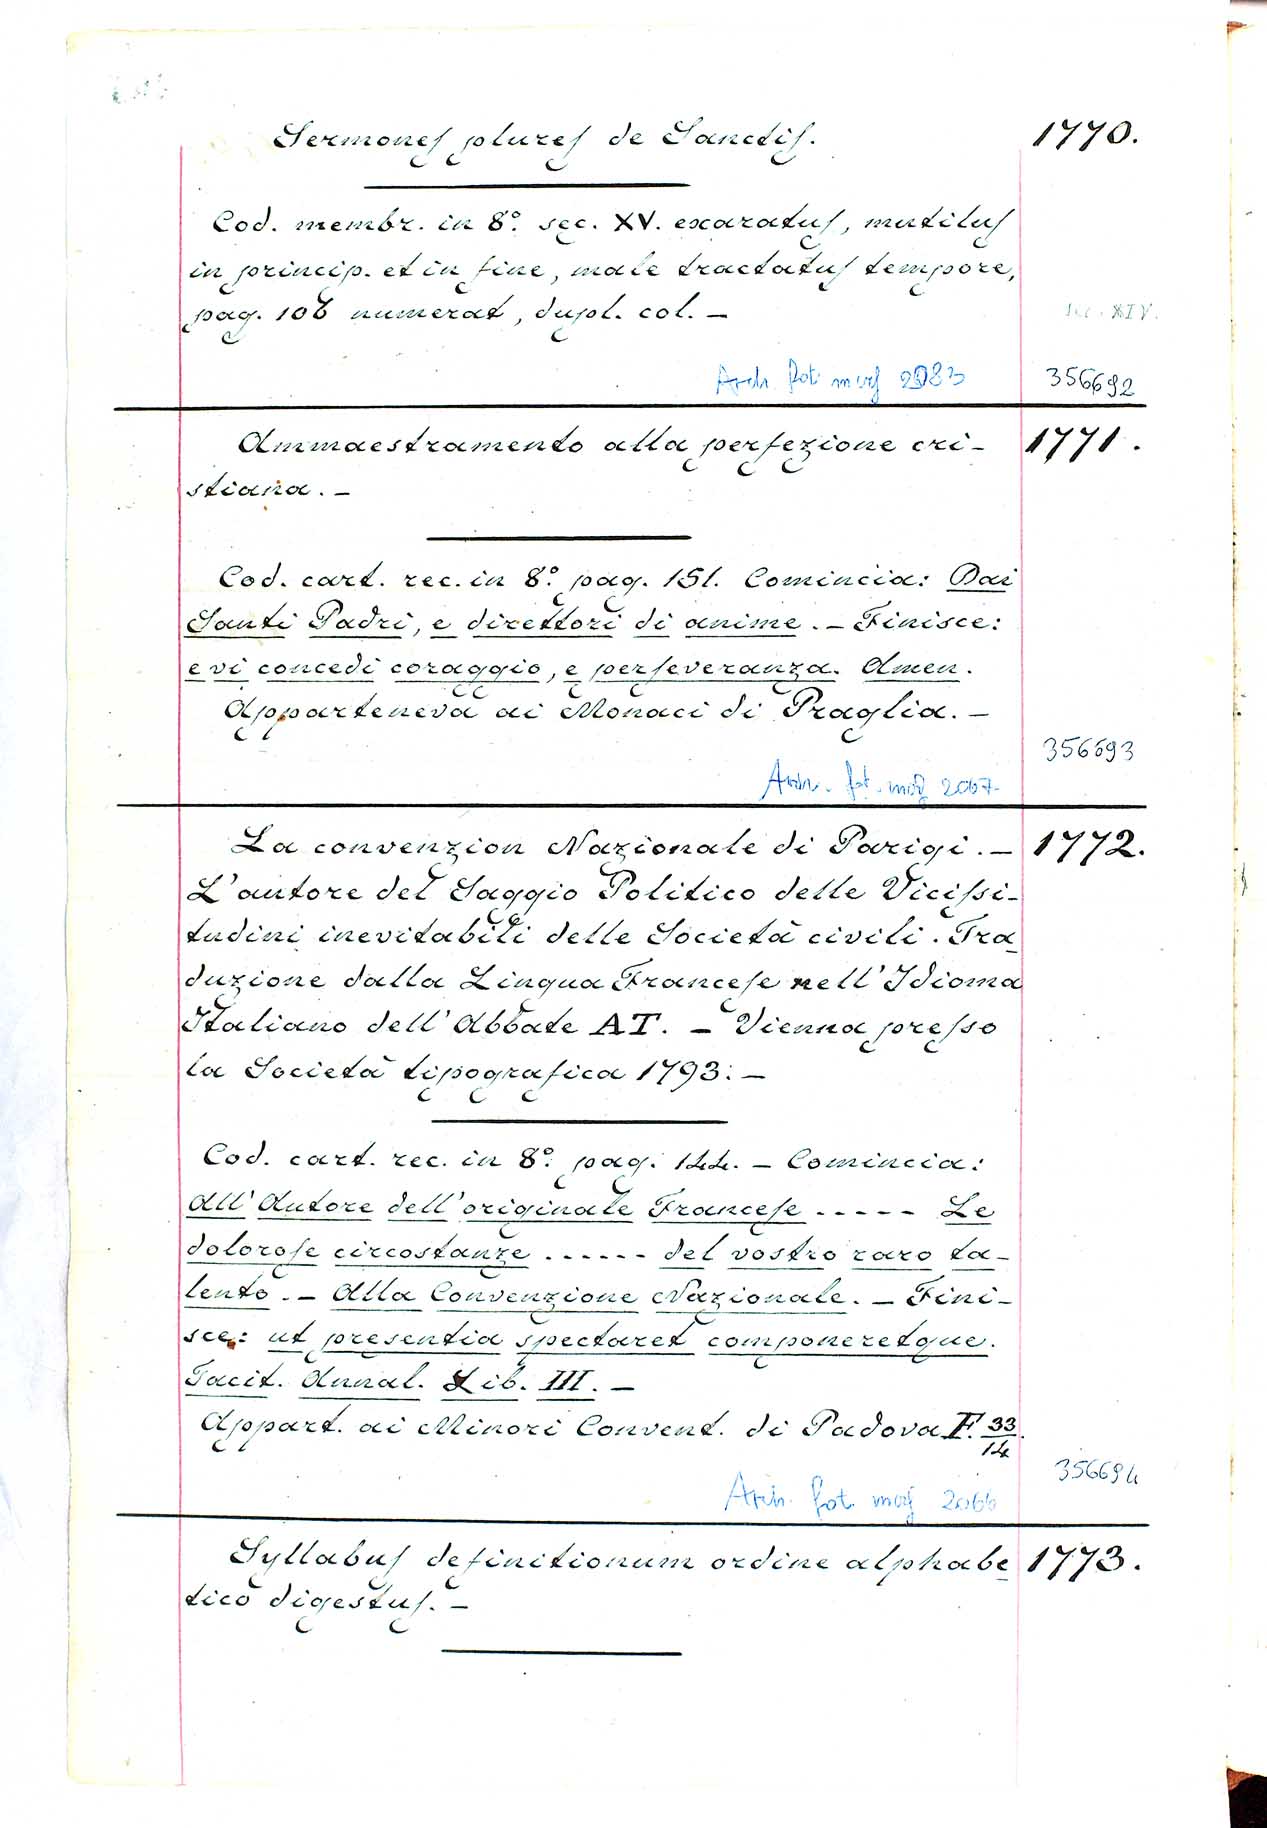 Sermones plures de Sanctis. 1770.
Cod. membr. in 8.° sec. XV. exaratus, mutilus
in princip. et in fine, male tractatus tempore,
pag. 106 numerat, dupl. col. —
sec. XIV.
Arch. fot. mss 2083 356692
Ammaestramento alla perfezione cri- 1771.
stiana. —
Cod. cart. rec. in 8.° pag. 151. Comincia: Dai
Santi Padri, e direttori di anime. — Finisce:
e vi concedi coraggio, e perseveranza. Amen.
Apparteneva ai Monaci di Praglia. —
356693
Arch. fot. mss 2067
La convenzion Nazionale di Parigi. — 1772.
L'autore del Saggio Politico delle Vicissi-
tudini inevitabili delle Società civili. Tra-
duzione dalla Lingua Francese nell'Idioma
Italiano dell'Abbate AT. — Vienna presso
la Società tipografica 1793. —
Cod. cart. rec. in 8.° pag. 144. — Comincia:
All'Autore dell'originale Francese ..... Le
dolorose circostanze ...... del vostro raro ta-
lento. — Alla Convenzione Nazionale. — Fini-
sce: ut presentia spectaret componeretque.
Tacit. Annal. Lib. III. —
Appart. ai Minori Convent. di Padova F. 33/14.
356694
Arch. fot. mss 2066
Syllabus definitionum ordine alphabe- 1773.
tico digestus. —